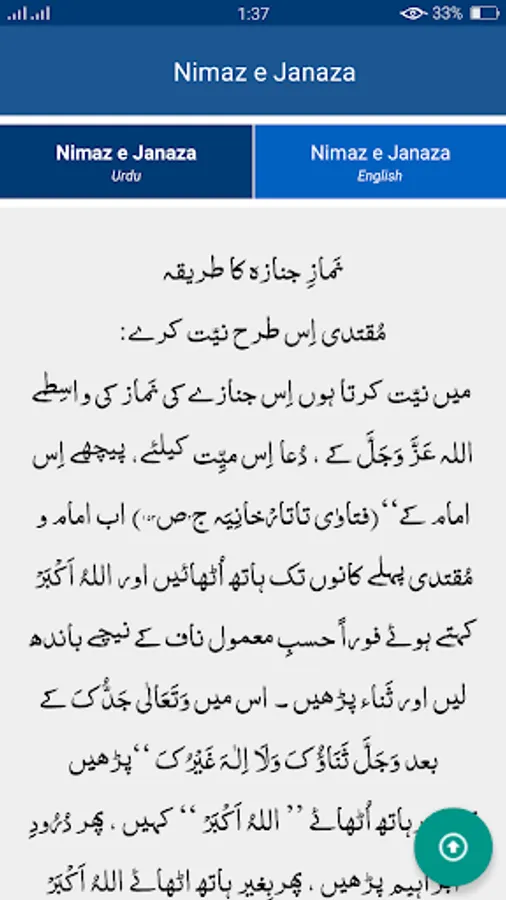 1:37
33%
Nimaz e Janaza
Nimaz e Janaza
Urdu
Nimaz e Janaza
English
نَمازِ جنازہ کا طریقہ
مُقتدی اِس طرح نیَّت کرے:
میں نیَّت کرتا ہوں اِس جنازے کی نَماز کی واسِطے
اللہ عَزَّ وَجَلَّ کے ، دُعا اِس میِّت کیلئے، پیچھے اِس
امام کے‘‘ (فتاوٰی تاتارْخانِیَہ ج ص) اب امام و
مُقتدی پہلے کانوں تک ہاتھ اُٹھائیں اور اَللہُ اَکْبَرْ
کہتے ہوئے فوراً حسبِ معمول ناف کے نیچے باندھ
لیں اور ثَناء پڑھیں ۔ اس میں وَتَعَالٰی جَدُّکَ کے
بعد وَجَلَّ ثَنَاؤُکَ وَلَا اِلٰہَ غَیْرُکَ ‘‘پڑھیں
ہاتھ اُٹھائے ’’ اَللہُ اَکْبَرْ ‘‘ کہیں ، پھر دُرُودِ
ابراہیم پڑھیں ، پھر بِغیر ہاتھ اٹھائے اَللہُ اَکْبَرْ